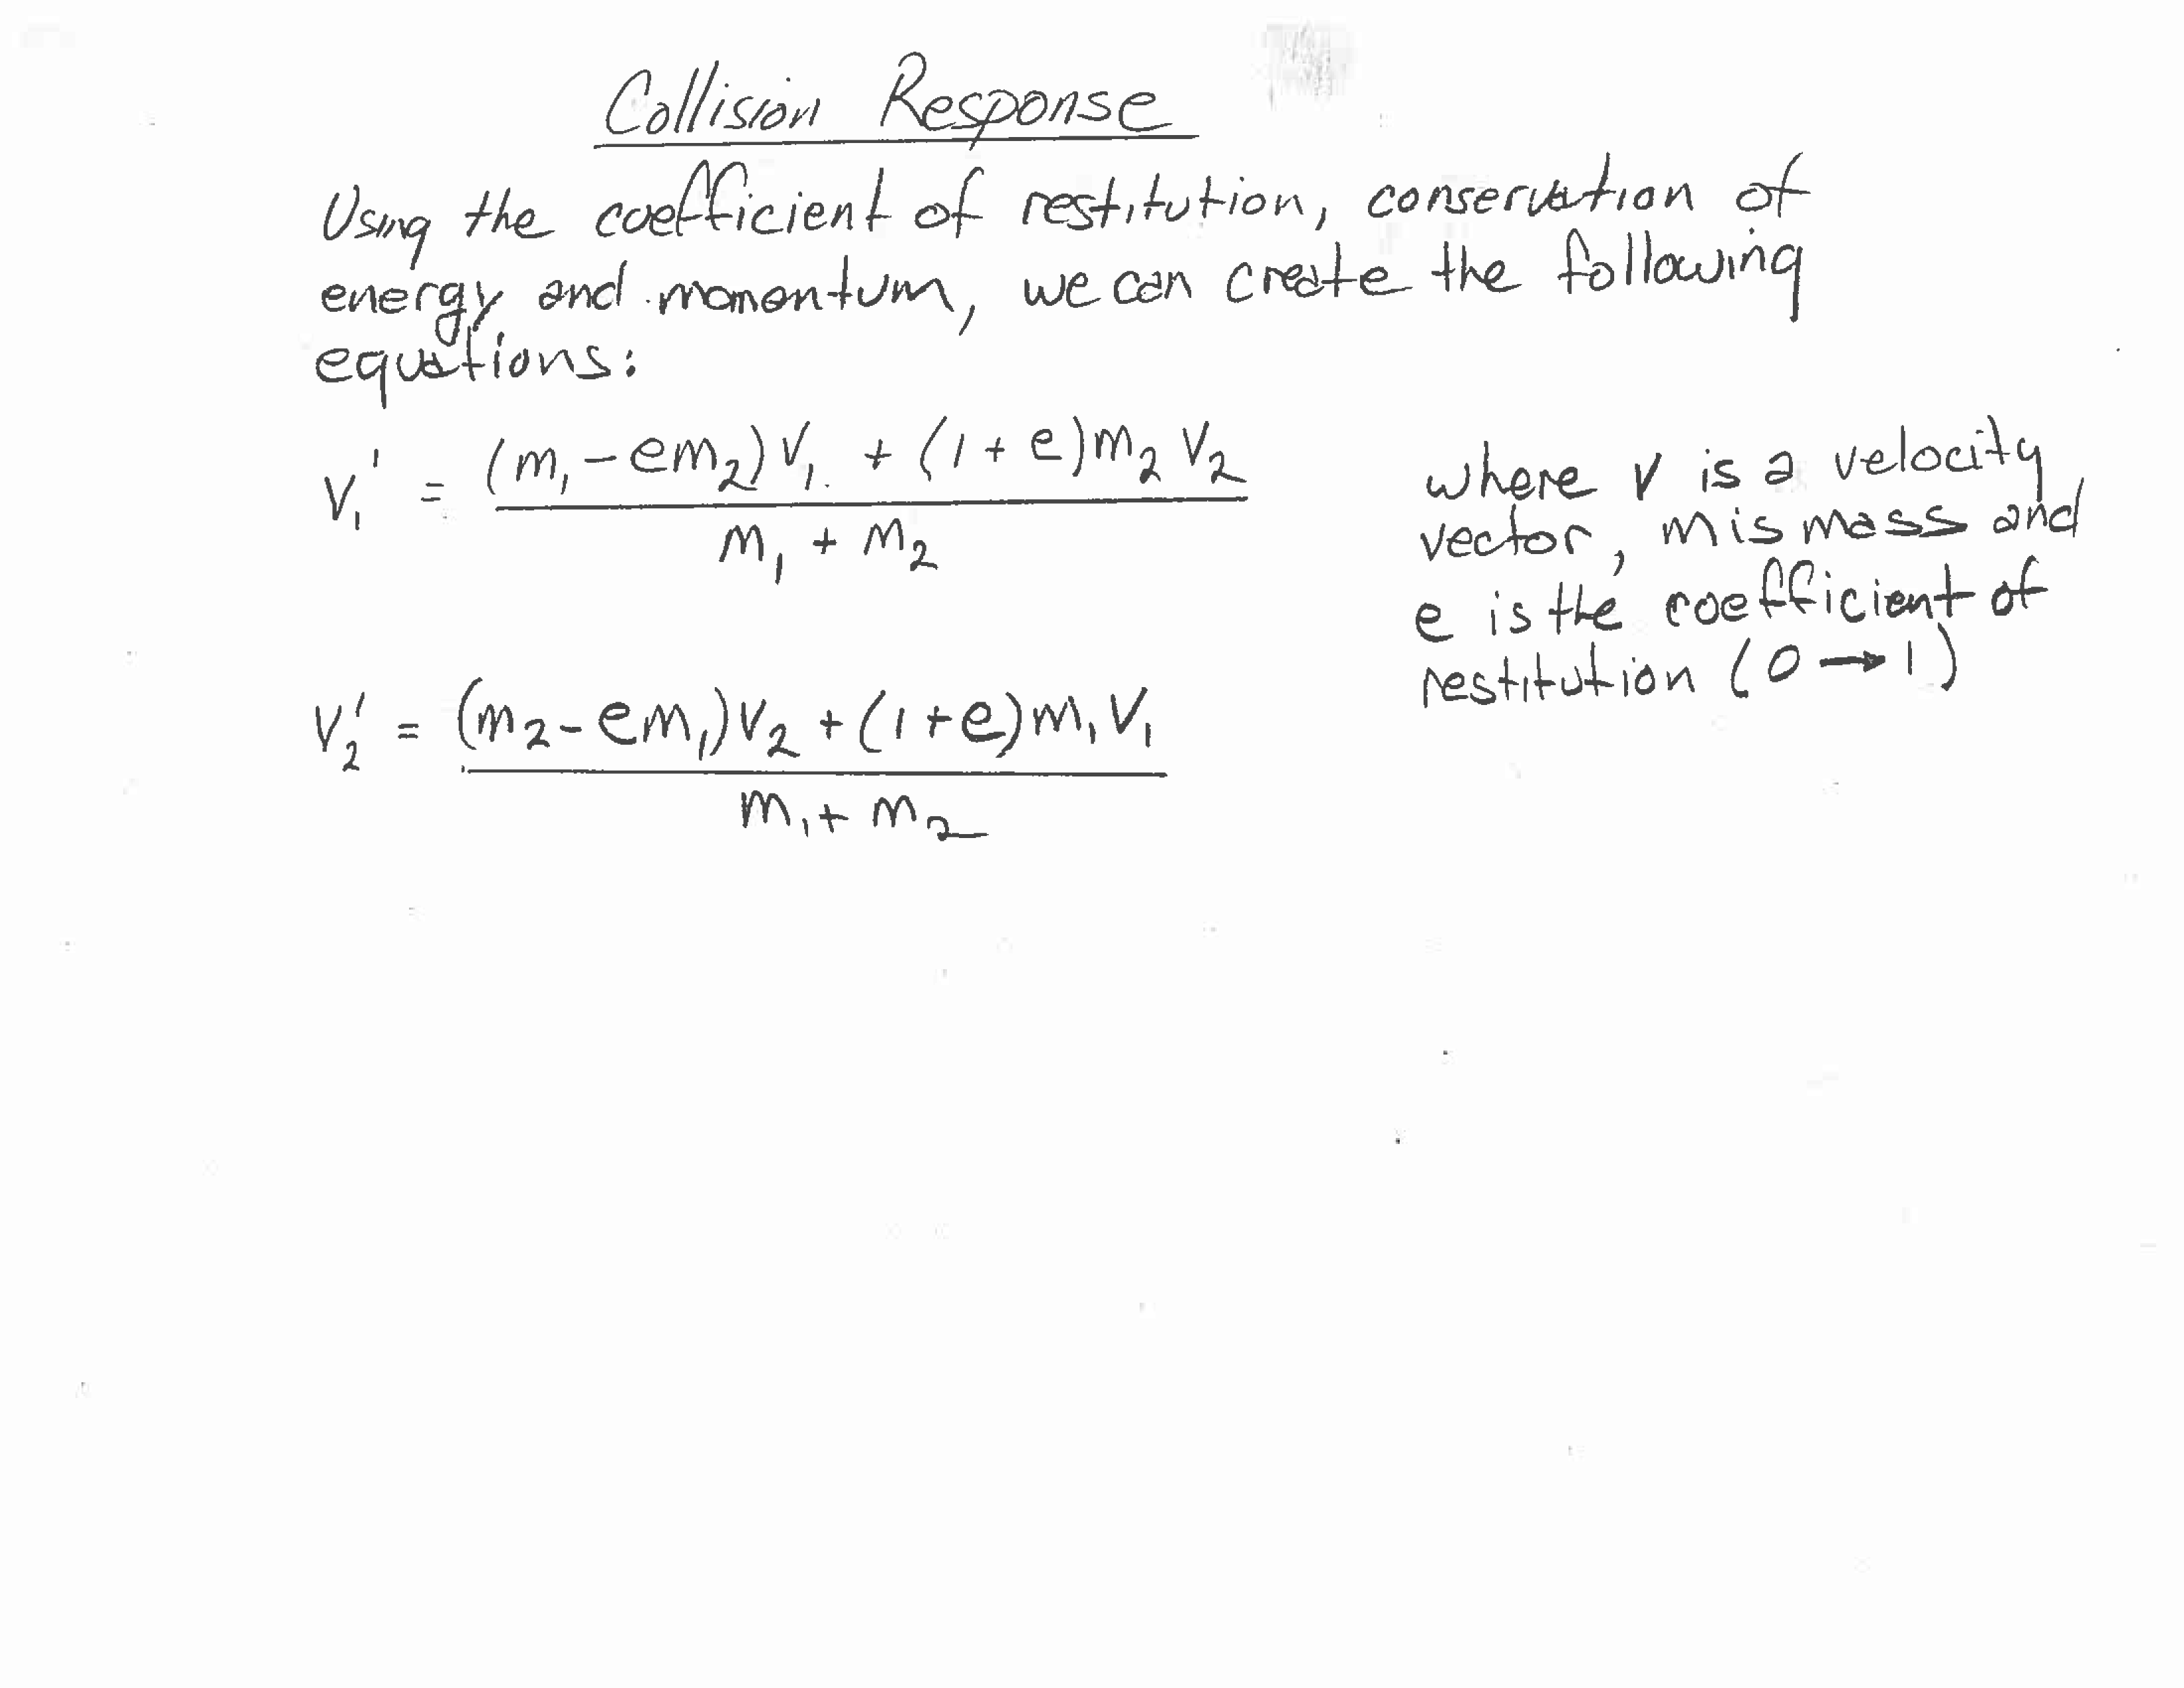 Collision Response
Using the coefficient of restitution, conservation of
energy and momentum, we can create the following
equations:
V₁' = (m₁ - em₂)V₁ + (1 + e)m₂V₂
m₁ + m₂
where v is a velocity
vector, m is mass and
e is the coefficient of
restitution (0 → 1)
V₂' = (m₂ - em₁)V₂ + (1 + e)m₁V₁
m₁ + m₂